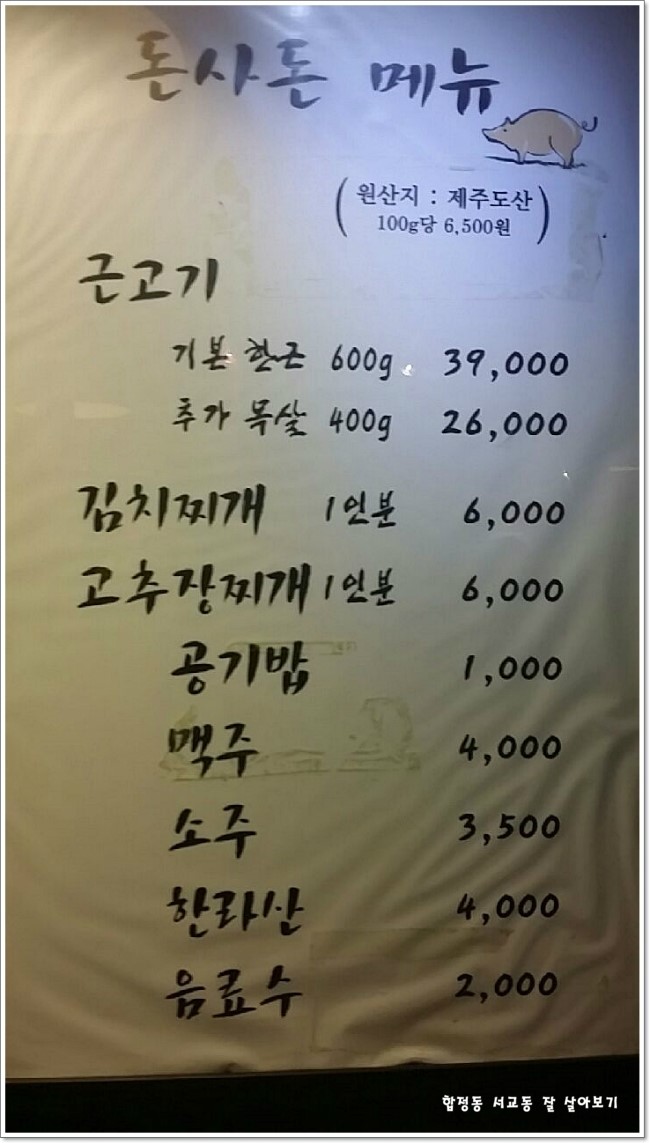 돈사돈 메뉴
(원산지 : 제주도산
100g당 6,500원)
근고기
기본 한근 600g 39,000
추가 목살 400g 26,000
김치찌개 1인분 6,000
고추장찌개 1인분 6,000
공기밥 1,000
맥주 4,000
소주 3,500
한라산 4,000
음료수 2,000
합정동 서교동 잘 살아보기